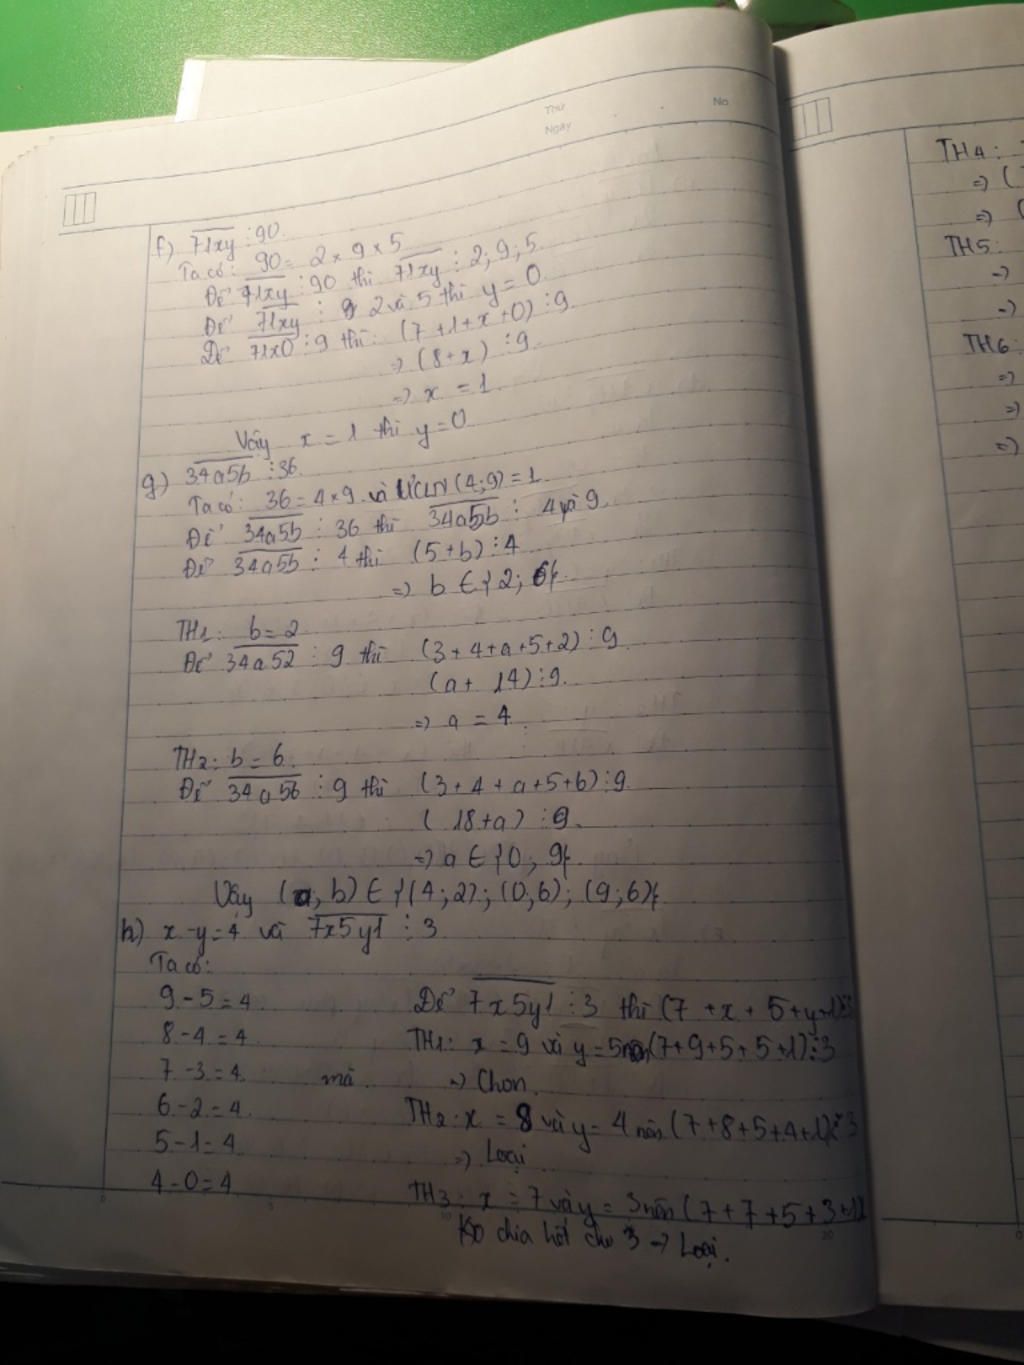 Thứ
Ngày
No
f) 71xy ⋮ 90
Ta có: 90 = 2 × 9 × 5
Để 71xy ⋮ 90 thì 71xy ⋮ 2; 9; 5
Để 71xy ⋮ 2 và 5 thì y = 0
Để 71x0 ⋮ 9 thì: (7 + 1 + x + 0) ⋮ 9
=> (8 + x) ⋮ 9
=> x = 1
Vây x = 1 thì y = 0
g) 34a5b ⋮ 36
Ta có: 36 = 4 × 9 và ƯCLN (4; 9) = 1
Để 34a5b ⋮ 36 thì 34a5b ⋮ 4 và 9
Để 34a5b ⋮ 4 thì (5 + b) ⋮ 4
=> b ∈ {2; 6}
TH1: b = 2
Để 34a52 ⋮ 9 thì (3 + 4 + a + 5 + 2) ⋮ 9
(a + 14) ⋮ 9
=> a = 4
TH2: b = 6
Để 34a56 ⋮ 9 thì (3 + 4 + a + 5 + 6) ⋮ 9
(18 + a) ⋮ 9
=> a ∈ {0; 9}
Vây (a, b) ∈ {(4; 2); (0; 6); (9; 6)}
h) x - y = 4 và 7x5y1 ⋮ 3
Ta có:
9 - 5 = 4
8 - 4 = 4
7 - 3 = 4 mà
6 - 2 = 4
5 - 1 = 4
4 - 0 = 4
Để 7x5y1 ⋮ 3 thì (7 + x + 5 + y + 1) ⋮ 3
TH1: x = 9 và y = 5 nên (7 + 9 + 5 + 5 + 1) ⋮ 3
=> Chọn
TH2: x = 8 và y = 4 nên (7 + 8 + 5 + 4 + 1) ⋮̸ 3
=> Loại
TH3: x = 7 và y = 3 nên (7 + 7 + 5 + 3 + 1)
Ko chia hết cho 3 => Loại.
TH4:
=> (
=> (
TH5:
=>
=>
TH6:
=>
=>
=>